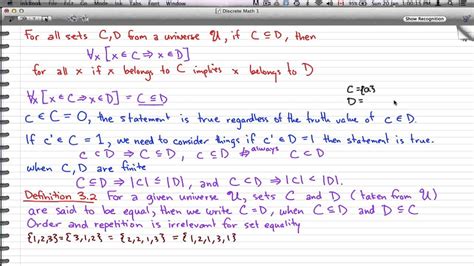 InkBook File Edit View Insert Format Tools Window Help
Sun 20 Jan 1:00:15 PM
Discrete Math 1
Show Recognition
For all sets C,D from a universe 𝒰, if C ⊆ D, then
∀x [x ∈ C ⇒ x ∈ D]
for all x if x belongs to C implies x belongs to D
C = {a}
∀x [x ∈ C ⇒ x ∈ D] = C ⊆ D
D =
c ∈ C = 0, the statement is true regardless of the truth value of c ∈ D.
If c' ∈ C = 1, we need to consider things if c' ∈ D = 1 then statement is true.
C ⊂ D ⇒ C ⊆ D, C ⊆ D always C ⊂ D
when C, D are finite
C ⊆ D ⇒ |C| ≤ |D|, and C ⊂ D ⇒ |C| < |D|
Definition 3.2 For a given universe 𝒰, sets C and D (taken from 𝒰)
are said to be equal, then we write C = D, when C ⊆ D and D ⊆ C
Order and repetition is irrelevant for set equality
{1,2,3} = {3,1,2} = {2,2,1,3} = {1,2,1,3,1}